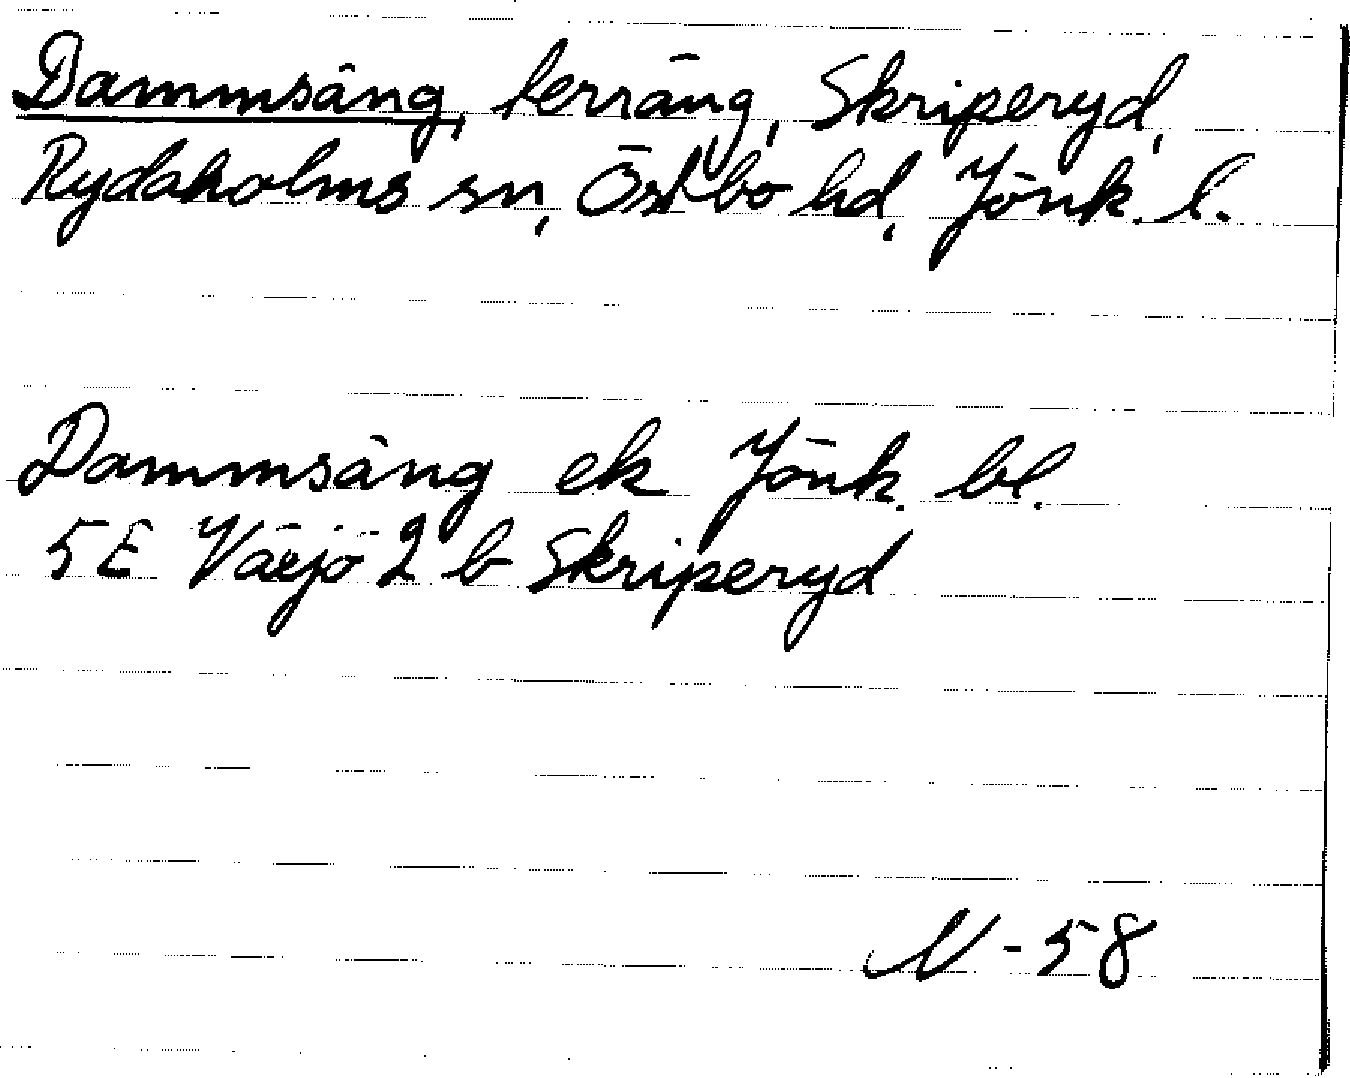 Dammsäng, terräng, Skriperyd,
Rydaholms sn, Östbo hd, Jönk. l.
Dammsäng ek Jönk. bl.
5E Växjö 2 b Skriperyd
N-58